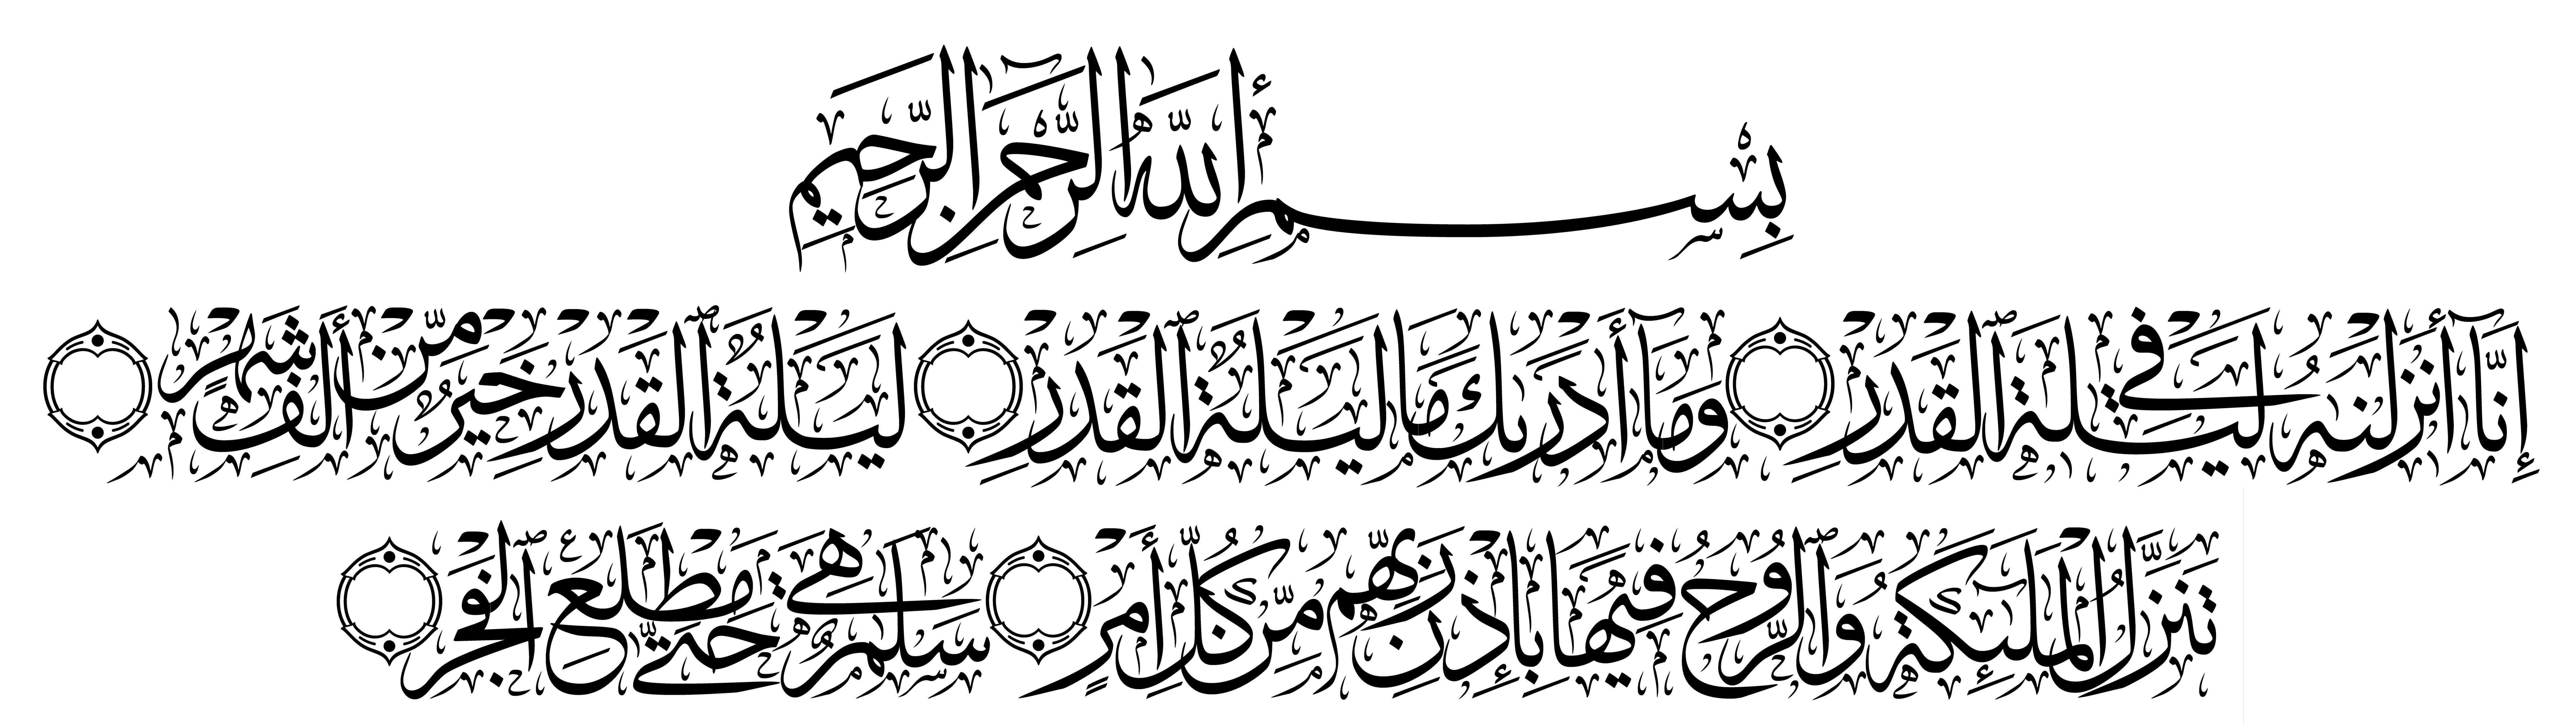 بِسْمِ ٱللَّهِ ٱلرَّحْمَٰنِ ٱلرَّحِيمِ
إِنَّآ أَنزَلْنَٰهُ فِى لَيْلَةِ ٱلْقَدْرِ وَمَآ أَدْرَىٰكَ مَا لَيْلَةُ ٱلْقَدْرِ لَيْلَةُ ٱلْقَدْرِ خَيْرٌ مِّنْ أَلْفِ شَهْرٍ
تَنَزَّلُ ٱلْمَلَٰٓئِكَةُ وَٱلرُّوحُ فِيهَا بِإِذْنِ رَبِّهِم مِّن كُلِّ أَمْرٍ سَلَٰمٌ هِىَ حَتَّىٰ مَطْلَعِ ٱلْفَجْرِ